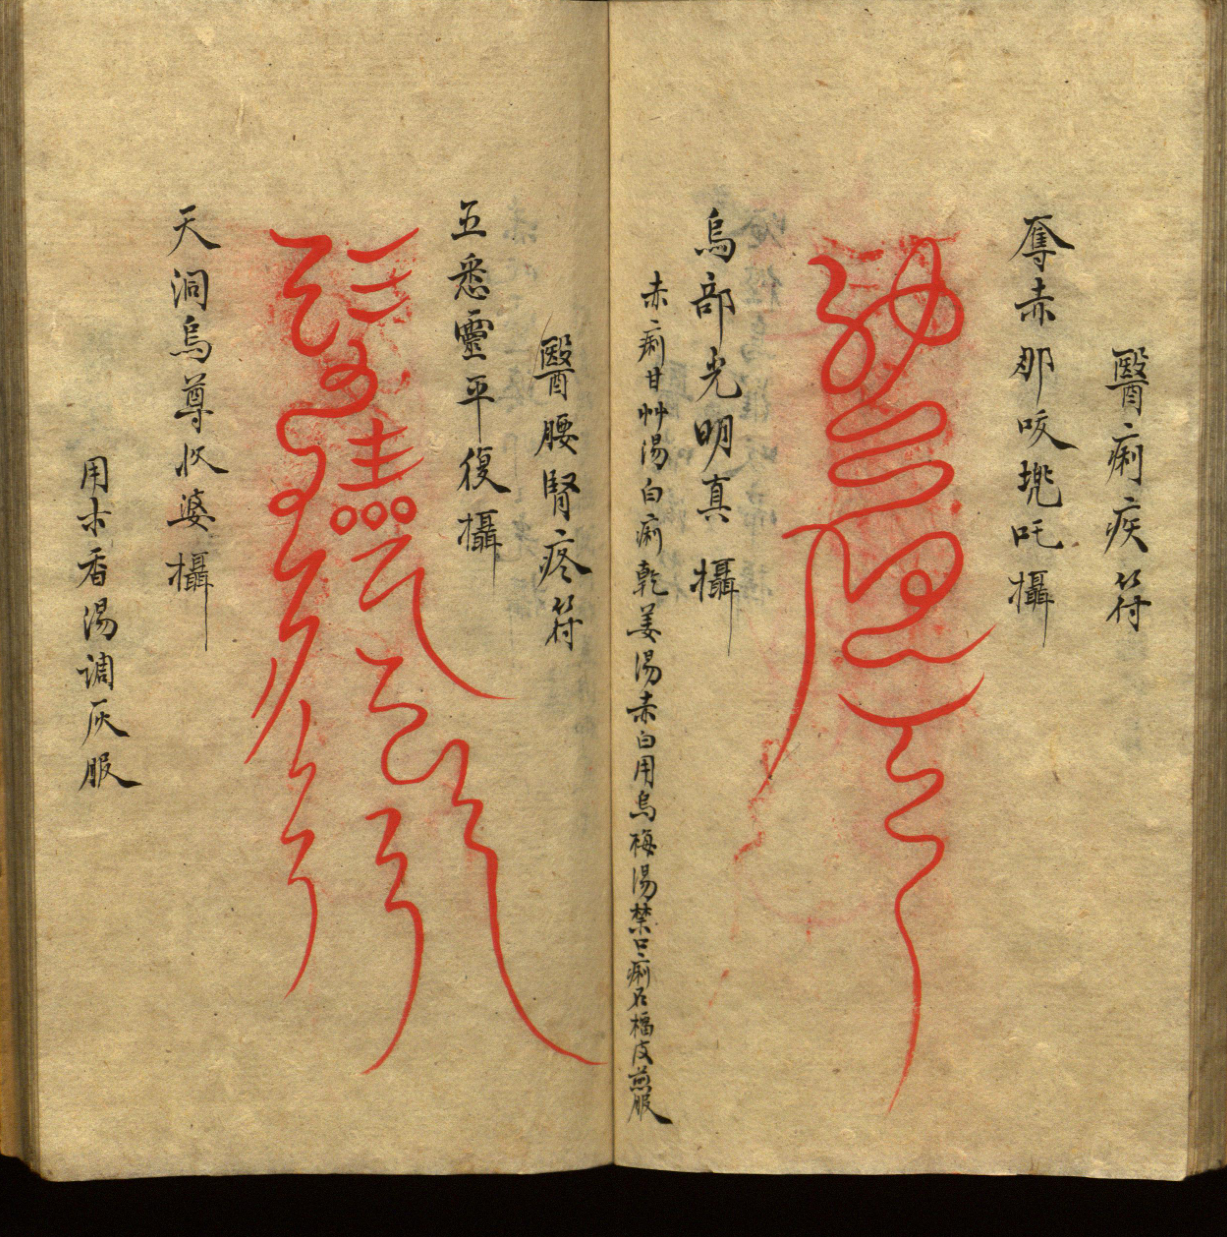 醫痢疾符
奪赤那咬㲈吒攝
烏部光明真攝
赤痢甘艸湯白痢乾姜湯赤白用烏梅湯禁口痢石榴皮煎服
醫腰腎疼符
五悉靈平復攝
天洞烏尊收婆攝
用木香湯調灰服